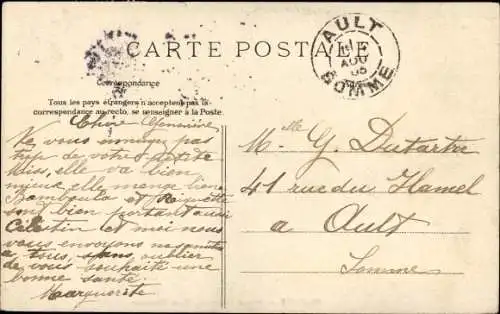 CARTE POSTALE
AULT
AOU
05
SOMME
Correspondance
Tous les pays étrangers n'acceptent pas la
correspondance au recto, se renseigner à la Poste.
Chère Geneviève
Ne vous ennuyez pas
trop de votre petite
Miss, elle va bien
mieux elle mange bien
Bamboula et
sont bien portant aussi
Célestin et moi nous
vous envoyons nos
a tous, sans oublier
de vous souhaité une
bonne santé.
Marguerite
Mlle G. Dutartre
41 rue du Hamel
a Ault
Somme